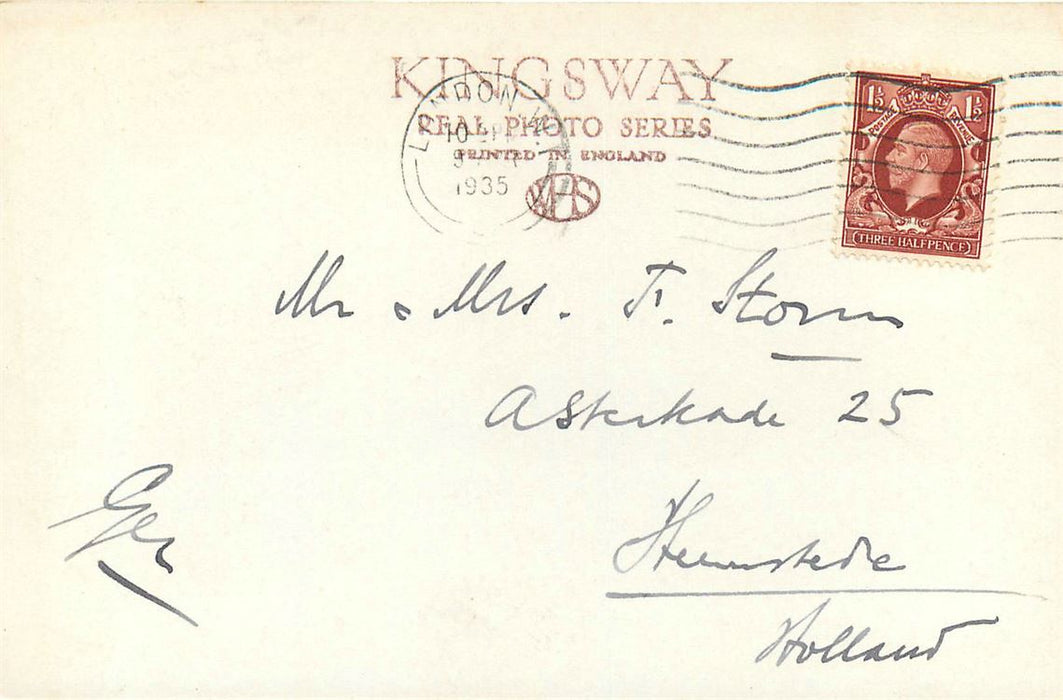 KINGSWAY
REAL PHOTO SERIES
PRINTED IN ENGLAND
WHS
LONDON
10
1935
1½ 1½
POSTAGE REVENUE
THREE HALFPENCE
Mr & Mrs. F. Storm
Asterkade 25
Ger
Heemstede
Holland